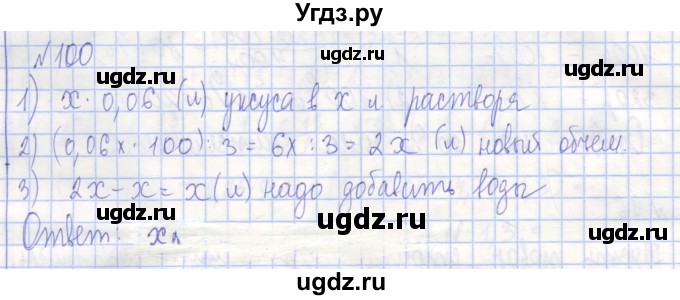 Угдз.ру
№100
ugdz.ru ugdz.ru
1) x · 0,06 (л) уксуса в x л раствора
ugdz.ru ugdz.ru
2) (0,06x · 100) : 3 = 6x : 3 = 2x (л) новый объём.
ugdz.ru ugdz.ru
3) 2x - x = x (л) надо добавить воды
ugdz.ru ugdz.ru
Ответ: x л
ugdz.ru ugdz.ru